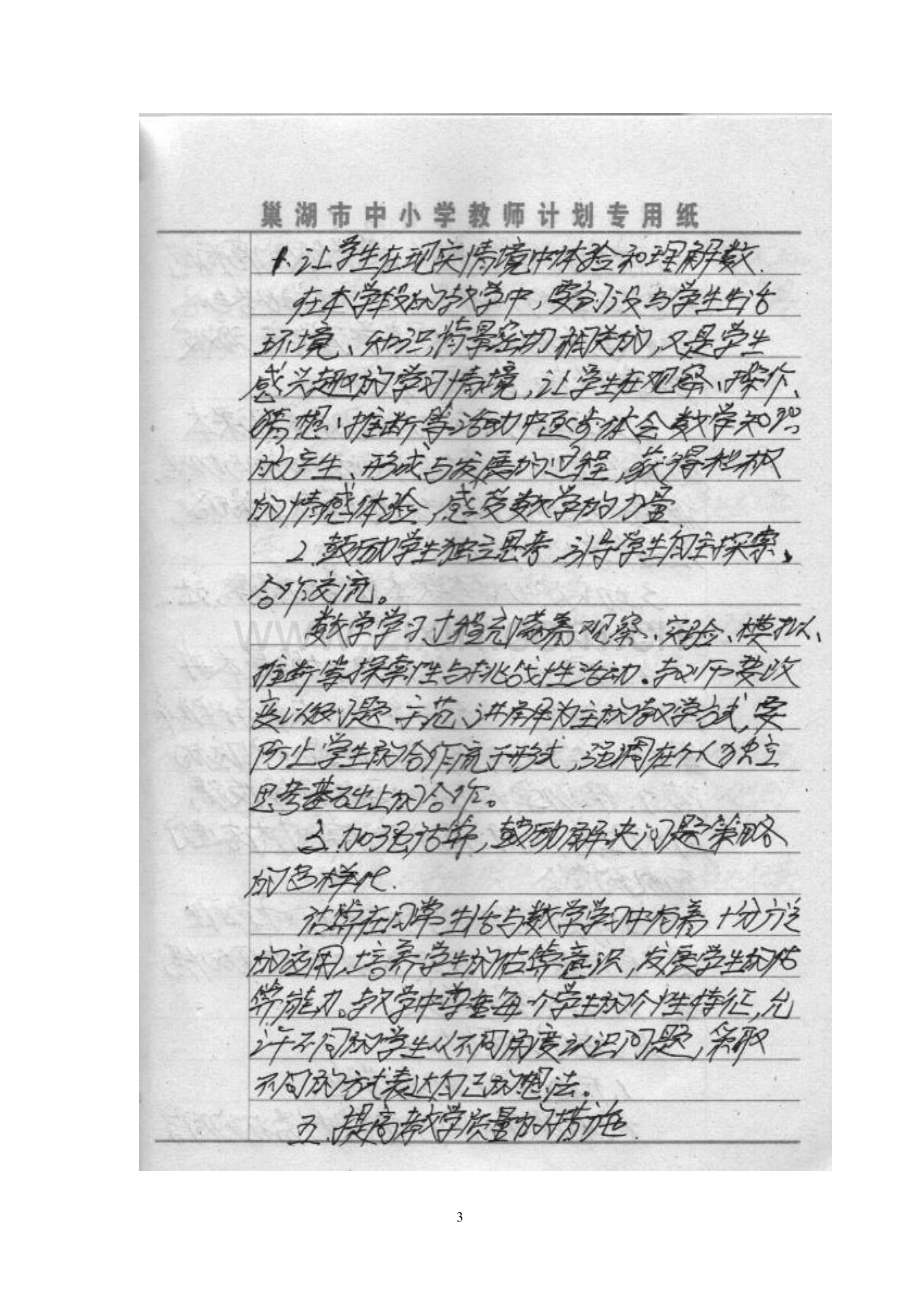 巢湖市中小学教师计划专用纸
1. 让学生在现实情境中体验和理解数.
在本学段的教学中，要创设与学生生活
环境、知识背景密切相关的，又是学生
感兴趣的学习情境，让学生在观察、操作、
猜想、推断等活动中逐步体会数学知识
的产生、形成与发展的过程，获得积极
的情感体验，感受数学的力量
2. 鼓励学生独立思考，引导学生自主探索、
合作交流。
数学学习过程充满着观察、实验、模拟、
推断等探索性与挑战性活动。教师要改
变以例题、示范、讲解为主的教学方式，要
防止学生的合作流于形式，强调在个人独立
思考基础上的合作。
3. 加强估算，鼓励解决问题策略
的多样化.
估算在日常生活与数学学习中有着十分广泛
的应用，培养学生的估算意识，发展学生的估
算能力。教学中尊重每个学生的个性特征，允
许不同的学生从不同角度认识问题，采取
不同的方式表达自己的想法。
五、提高教学质量的措施.
WWW
3